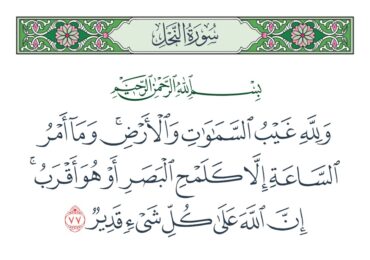 سُورَةُ النَّحْلِ
بِسْمِ اللَّهِ الرَّحْمَٰنِ الرَّحِيمِ
وَلِلَّهِ غَيْبُ السَّمَٰوَٰتِ وَالْأَرْضِ ۚ وَمَآ أَمْرُ
السَّاعَةِ إِلَّا كَلَمْحِ الْبَصَرِ أَوْ هُوَ أَقْرَبُ ۚ
إِنَّ اللَّهَ عَلَىٰ كُلِّ شَىْءٍ قَدِيرٌ ٧٧